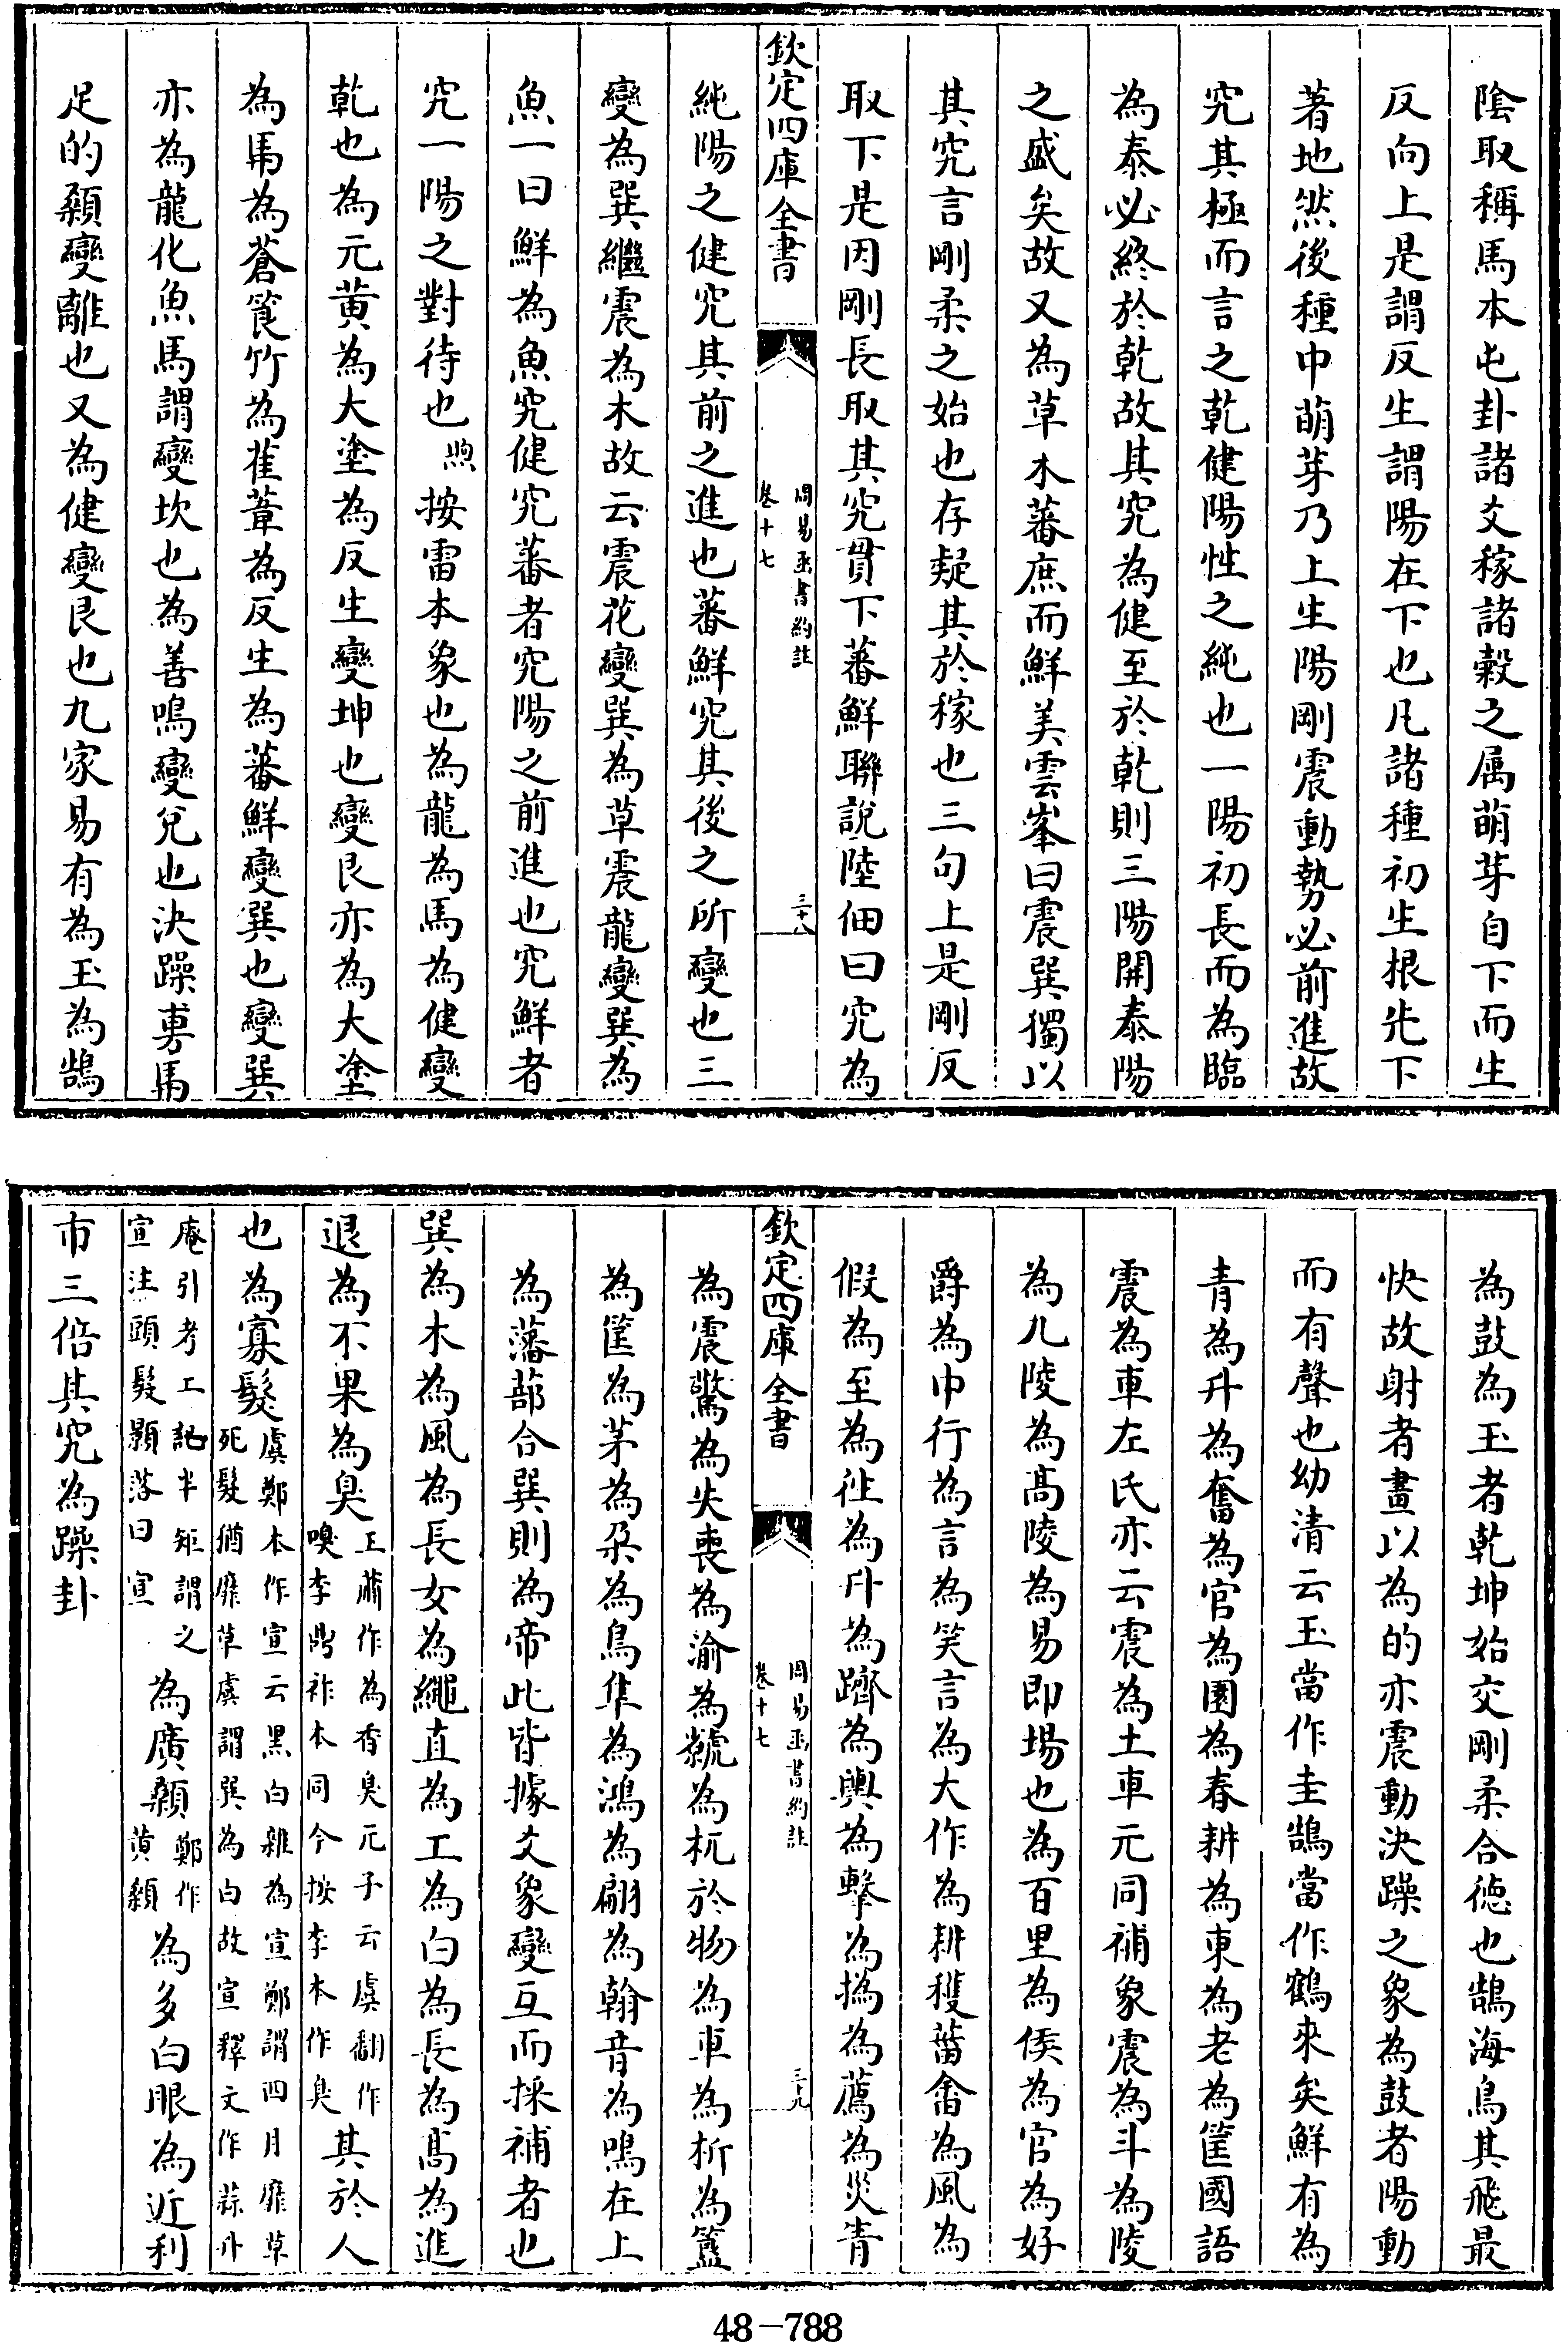 陰取稱馬本屯卦諸爻稼諸穀之属萌芽自下而生
反向上是謂反生謂陽在下也凡諸種初生根先下
著地然後種中萌芽乃上生陽剛震動勢必前進故
究其極而言之乾健陽性之純也一陽初長而為臨
為泰必終於乾故其究為健至於乾則三陽開泰陽
之盛矣故又為草木蕃庶而鮮美雲峯曰震巽獨以
其究言剛柔之始也存疑其於稼也三句上是剛反
取下是因剛長取其究貫下蕃鮮聯說陸佃曰究為
欽定四庫全書
周易函書約註
卷十七
三十八
純陽之健究其前之進也蕃鮮究其後之所變也三
變為巽繼震為木故云震花變巽為草震龍變巽為
魚一曰鮮為魚究健究蕃者究陽之前進也究鮮者
究一陽之對待也煦按雷本象也為龍為馬為健變
乾也為元黄為大塗為反生變坤也變艮亦為大塗
為馬為蒼筤竹為萑葦為反生為蕃鮮變巽也變巽
亦為龍化魚馬謂變坎也為善鳴變兌也決躁旉馬
足的顙變離也又為健變艮也九家易有為玉為鵠
為鼓為玉者乾坤始交剛柔合德也鵠海鳥其飛最
快故射者畫以為的亦震動決躁之象為鼓者陽動
而有聲也幼清云玉當作圭鵠當作鶴來矣鮮有為
青為升為奮為官為園為春耕為東為老為筐國語
震為車左氏亦云震為土車元同補象震為斗為陵
為九陵為高陵為易即埸也為百里為侯為官為好
爵為巾行為言為笑言為大作為耕穫菑畬為風為
假為至為徃為升為躋為輿為擊為撝為薦為災眚
欽定四庫全書
周易函書約註
卷十七
三十九
為震驚為失喪為渝為虩為杌於物為車為析為簋
為筐為茅為朶為鳥隼為鴻為翩為翰音為鳴在上
為藩蔀合巽則為帝此皆據爻象變互而採補者也
巽為木為風為長女為繩直為工為白為長為高為進
退為不果為臭王肅作為香臭元子云虞翻作
嗅李鼎祚本同今按李本作臭其於人
也為寡髮虞鄭本作宣云黒白雜為宣鄭謂四月靡草
死髮猶靡草虞謂巽為白故宣釋文作蒜升
庵引考工記半矩謂之
宣注頭髮顥落曰宣為廣顙鄭作
黄顙為多白眼為近利
市三倍其究為躁卦
48-788